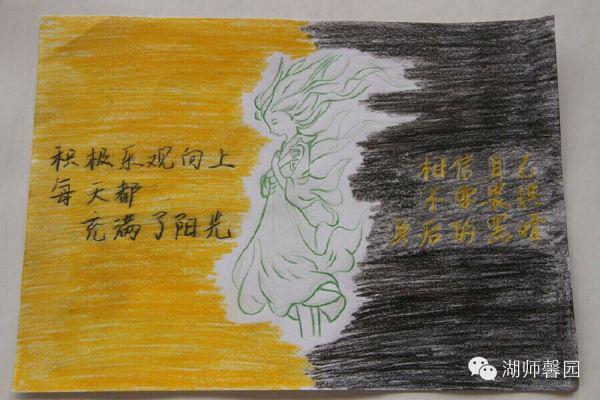 积极乐观向上
每天都
充满了阳光
相信自己
不要畏惧
身后的黑暗
湖师馨园